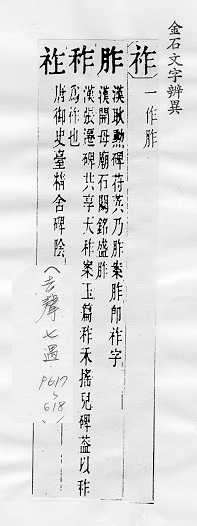 金石文字辨異
祚 一作胙
胙 漢耿勳碑苻莢乃胙案胙即祚字
漢開母廟石闕銘盛胙
秨 漢張遷碑共享天秨案玉篇秨禾搖皃碑蓋以秨
爲祚也
祚 唐御史臺精舍碑陰
（去聲七遇
P617
～
618）